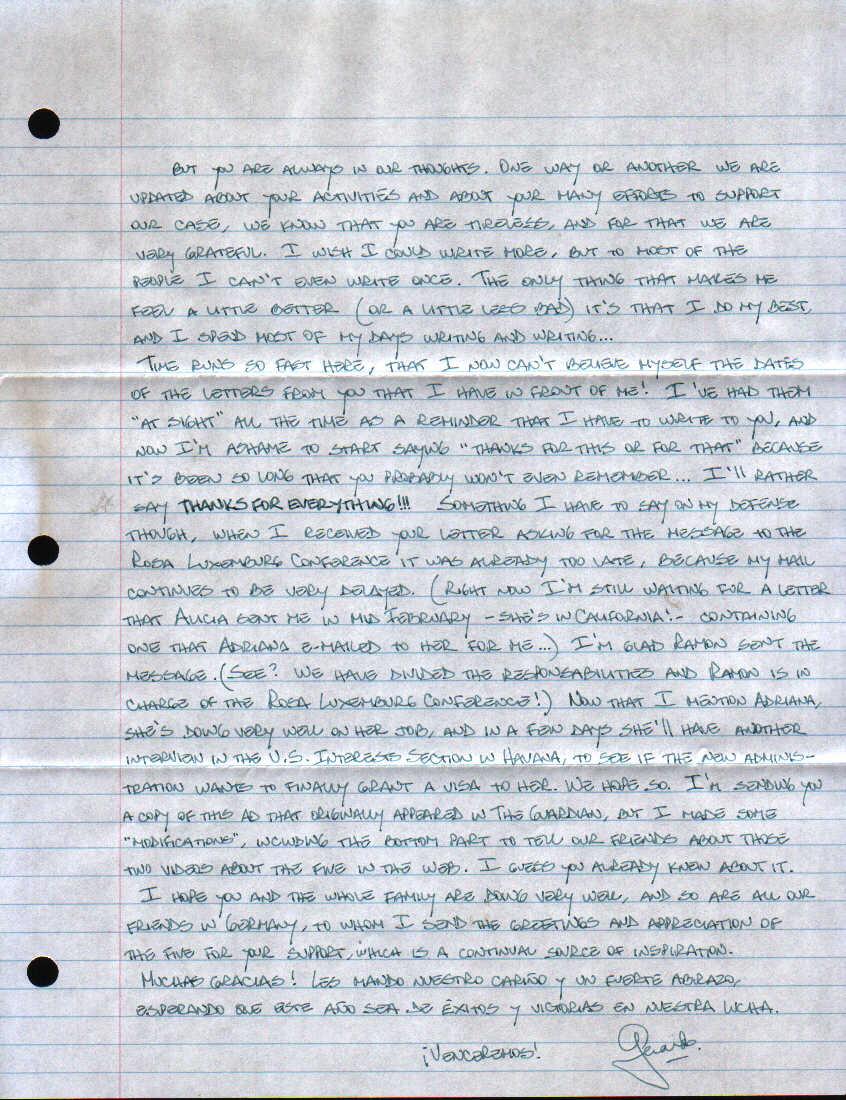 BUT YOU ARE ALWAYS IN OUR THOUGHTS. ONE WAY OR ANOTHER WE ARE
UPDATED ABOUT YOUR ACTIVITIES AND ABOUT YOUR MANY EFFORTS TO SUPPORT
OUR CASE, WE KNOW THAT YOU ARE TIRELESS, AND FOR THAT WE ARE
VERY GRATEFUL. I WISH I COULD WRITE MORE, BUT TO MOST OF THE
PEOPLE I CAN'T EVEN WRITE ONCE. THE ONLY THING THAT MAKES ME
FEEL A LITTLE BETTER (OR A LITTLE LESS BAD) IT'S THAT I DO MY BEST,
AND I SPEND MOST OF MY DAYS WRITING AND WRITING...
TIME RUNS SO FAST HERE, THAT I NOW CAN'T BELIEVE MYSELF THE DATES
OF THE LETTERS FROM YOU THAT I HAVE IN FRONT OF ME! I'VE HAD THEM
"AT SIGHT" ALL THE TIME AS A REMINDER THAT I HAVE TO WRITE TO YOU, AND
NOW I'M ASHAME TO START SAYING "THANKS FOR THIS OR FOR THAT" BECAUSE
IT'S BEEN SO LONG THAT YOU PROBABLY WON'T EVEN REMEMBER... I'LL RATHER
SAY THANKS FOR EVERYTHING!!! SOMETHING I HAVE TO SAY ON MY DEFENSE
THOUGH, WHEN I RECEIVED YOUR LETTER ASKING FOR THE MESSAGE TO THE
ROSA LUXEMBURG CONFERENCE IT WAS ALREADY TOO LATE, BECAUSE MY MAIL
CONTINUES TO BE VERY DELAYED. (RIGHT NOW I'M STILL WAITING FOR A LETTER
THAT ALICIA SENT ME IN MID FEBRUARY -SHE'S IN CALIFORNIA!- CONTAINING
ONE THAT ADRIANA E-MAILED TO HER FOR ME...) I'M GLAD RAMON SENT THE
MESSAGE. (SEE? WE HAVE DIVIDED THE RESPONSABILITIES AND RAMON IS IN
CHARGE OF THE ROSA LUXEMBURG CONFERENCE!) NOW THAT I MENTION ADRIANA,
SHE'S DOING VERY WELL ON HER JOB, AND IN A FEW DAYS SHE'LL HAVE ANOTHER
INTERVIEW IN THE U.S. INTERESTS SECTION IN HAVANA, TO SEE IF THE NEW ADMINIS-
TRATION WANTS TO FINALLY GRANT A VISA TO HER. WE HOPE SO. I'M SENDING YOU
A COPY OF THIS AD THAT ORIGINALLY APPEARED IN THE GUARDIAN, BUT I MADE SOME
"MODIFICATIONS", INCLUDING THE BOTTOM PART TO TELL OUR FRIENDS ABOUT THOSE
TWO VIDEOS ABOUT THE FIVE IN THE WEB. I GUESS YOU ALREADY KNEW ABOUT IT.
I HOPE YOU AND THE WHOLE FAMILY ARE DOING VERY WELL, AND SO ARE ALL OUR
FRIENDS IN GERMANY, TO WHOM I SEND THE GREETINGS AND APPRECIATION OF
THE FIVE FOR YOUR SUPPORT, WHICH IS A CONTINUAL SOURCE OF INSPIRATION.
MUCHAS GRACIAS! LES MANDO NUESTRO CARIÑO Y UN FUERTE ABRAZO,
ESPERANDO QUE ESTE AÑO SEA DE ÉXITOS Y VICTORIAS EN NUESTRA LUCHA.
¡VENCEREMOS! Gerardo.